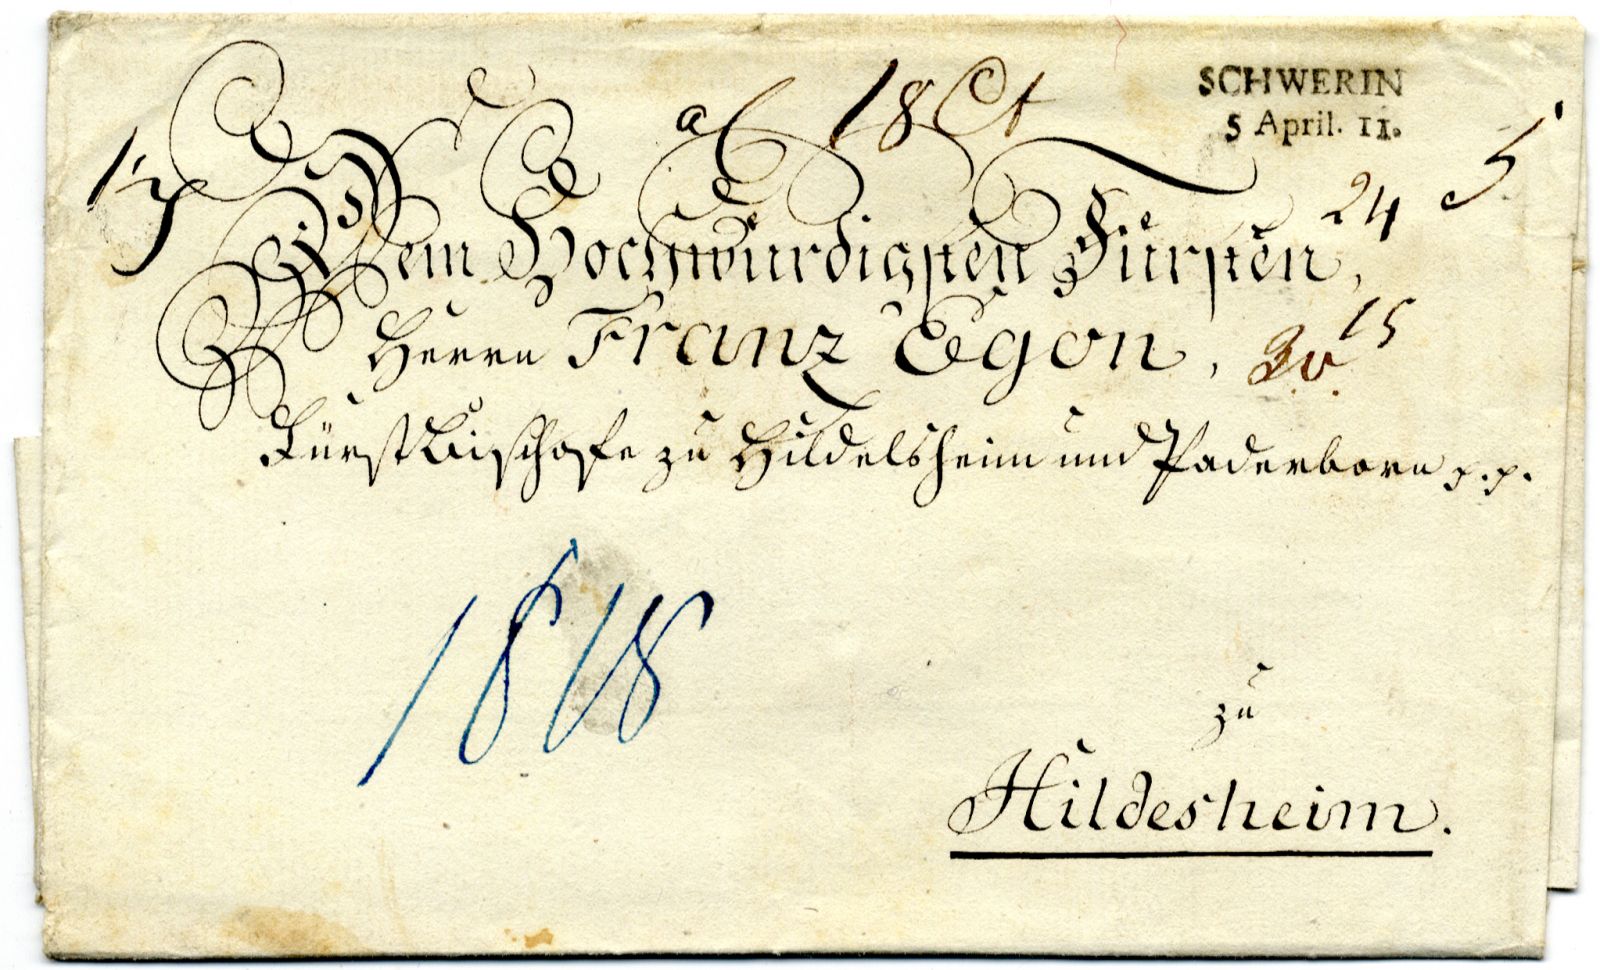 18 Ct
SCHWERIN
5 April. 11.
5
24
Dem Hochwürdigsten Fürsten,
Herrn Franz Egon,
15
30
FürstBischofe zu Hildelsheim und Paderborn p.p.
1818
zu
Hildesheim.